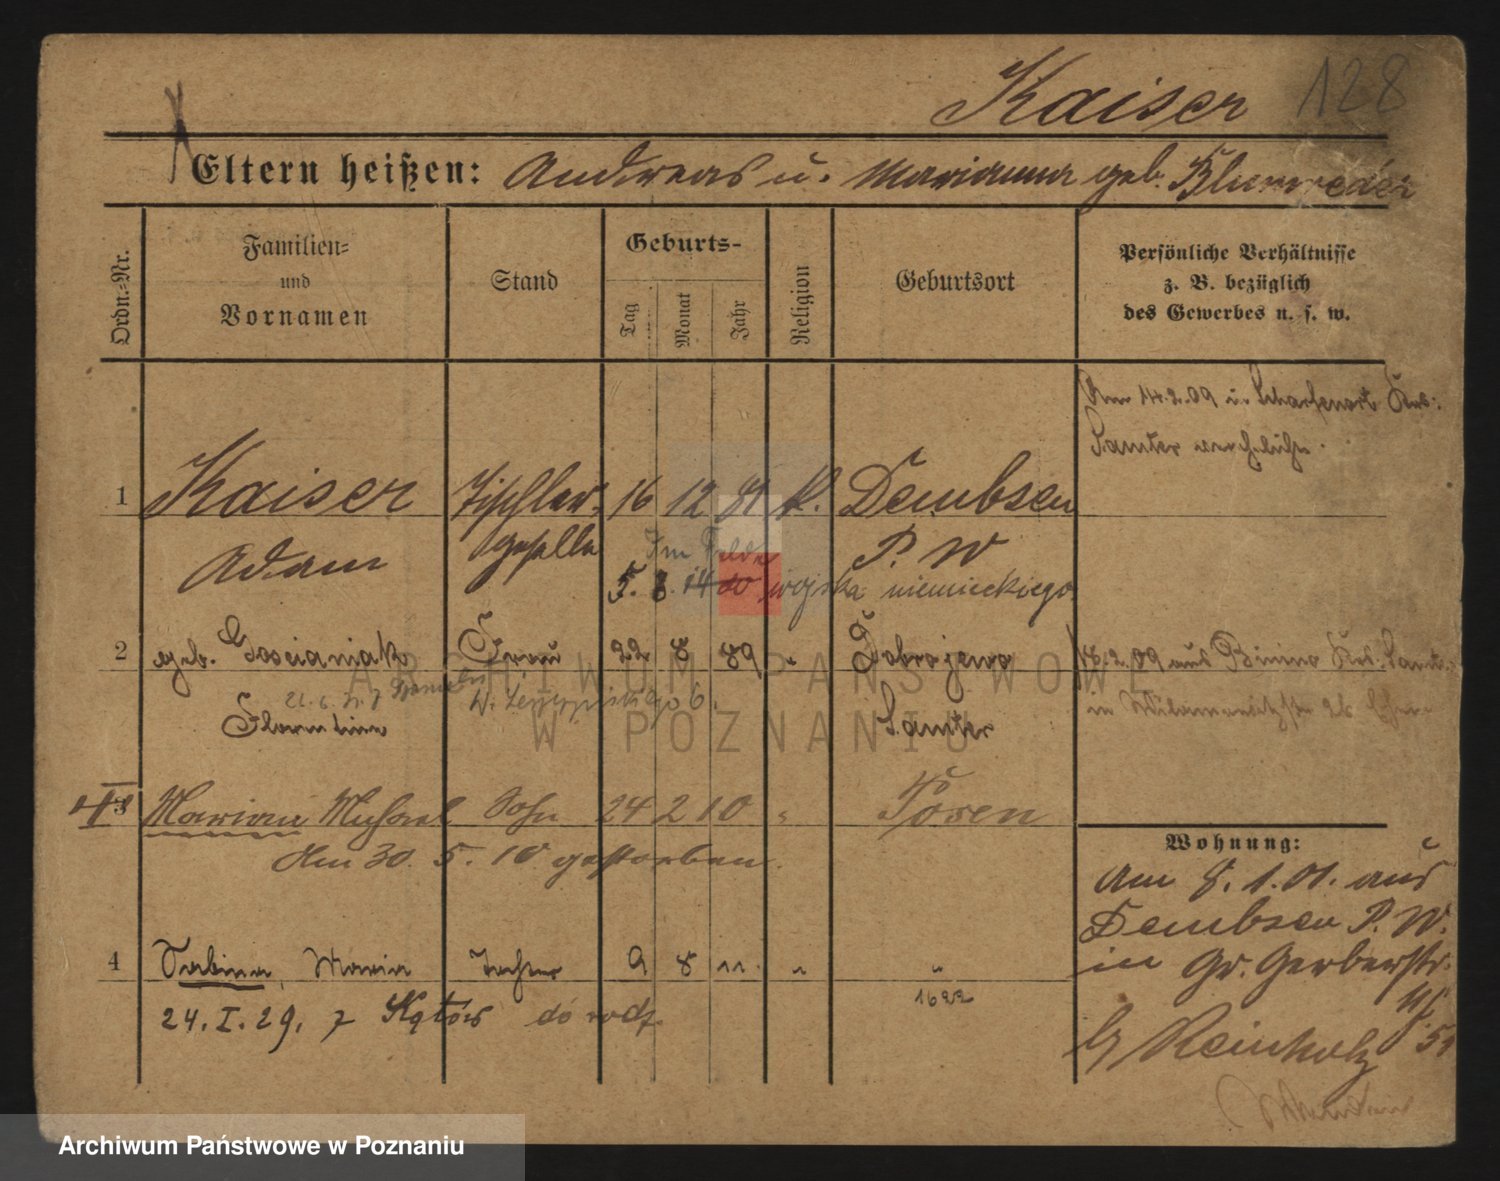 Kaiser 128
Eltern heißen: Andreas u. Marianna geb. Blumreder
Ordn.-Nr.
Familien-
und
Vornamen
Stand
Geburts-
Tag
Monat
Jahr
Religion
Geburtsort
Persönliche Verhältnisse
z. B. bezüglich
des Gewerbes u. s. w.
Am 14.2.09 in Scharfenort Krs.
Samter verehelicht.
1 Kaiser Tischler- 16 12 81 k. Dembsen
Adam geselle P. W
Im Felde
5. 8. 14 do wojska niemieckiego
2 geb. Gościaniak Frau 22 8 89 " Dobrojewo
18.2.09 aus Binino Krs. Samt.
Florentine Samter
3 Marian Michael Sohn 24 2 10 " Posen
Am 30. 5. 10 gestorben.
4 Sabina, Maria Tochter 9 8 11. " "
24. I. 29. z Kątów do rodz.
1622
Wohnung:
Am 8. 1. 01. aus
Dembsen P. W.
in Gr. Gerberstr.
51
b/ Reinholz
ARCHIWUM PAŃSTWOWE
W POZNANIU
Archiwum Państwowe w Poznaniu